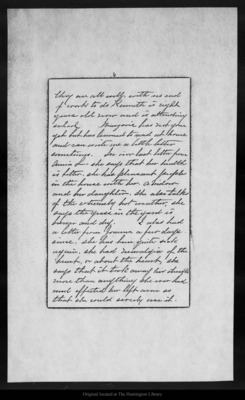 they are all well, with no end
of work to do Kenneth is eight
years old now and is attending
school. Marjorie has not gone
yet but has learned to read at home
and can write me a little letter
sometimes. In our last letter from
Annie L. she says that her health
is better, she has pleasant people
in the house with her, a widow
and her daughter. She also talks
of the extremely hot weather, she
says the grass in the yard is
and dry. I also had
a letter from Joanna a few days
since. She has been quite sick
again. She had neuralgia of the
heart, or about the heart, she
says that it took away her strength
more than anything she ever had
and affected her left arm so
that she could scarcely use it.
Original located at The Huntington Library